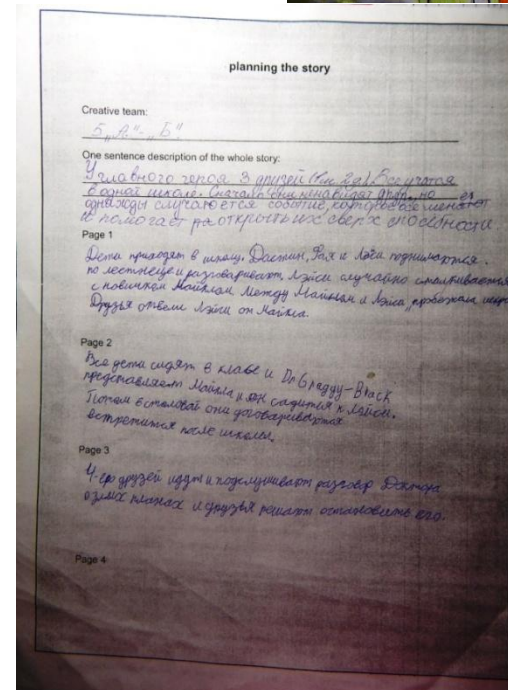 planning the story
Creative team:
5 „А"- „Б"
One sentence description of the whole story:
У главного героя 3 друзей Все учатся
в одной школе. Сначала они ненавидят но
однажды случаются событие, которое все меняет
и помогает раоткрыть их сверх способности
Page 1
Дети приходят в школу. Дастин, Рая и поднимаются
по лестнице и разговаривают. Лэйси случайно сталкивается
с новичком Майклом. Между Майклом и Лэйси „пробежала искра
Друзья отвели Лэйси от Майкла.
Page 2
Все дети сидят в класе и Dr Graggy-Black
представляет Майкла и он садится к Лэйси.
Потом в столовой они договариваются
встретится после школы.
Page 3
4-ро друзей идут и подслушивают разговор Доктора
о злых планах и друзья решают остановить его.
Page 4